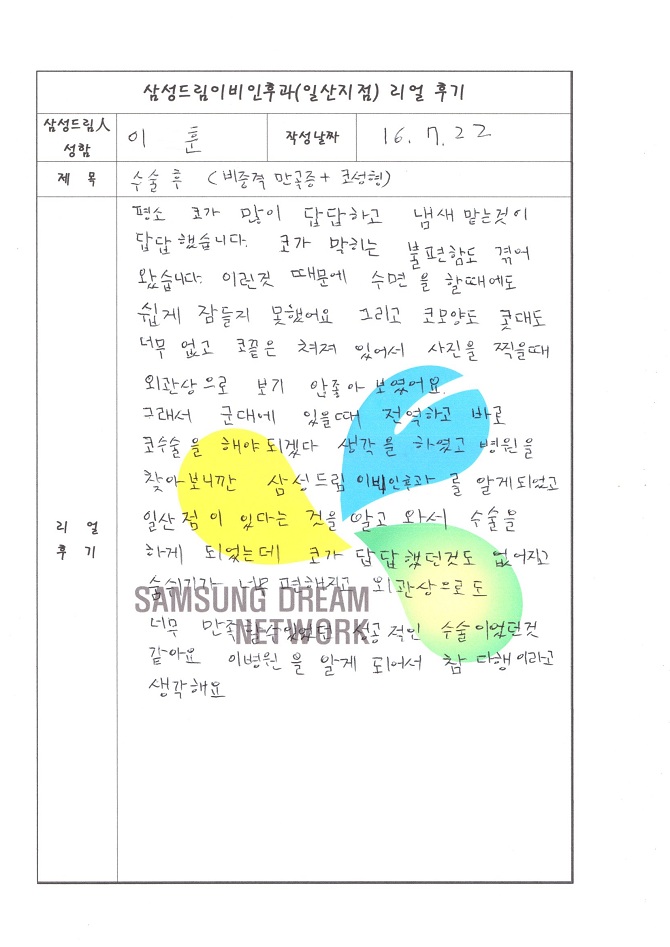 삼성드림이비인후과(일산지점) 리얼 후기
삼성드림人 성함
이 훈
작성날짜
16. 7. 22
제 목
수술 후 (비중격 만곡증 + 코성형)
리 얼
후 기
평소 코가 많이 답답하고 냄새 맡는것이
답답했습니다. 코가 막히는 불편함도 겪어
왔습니다. 이런것 때문에 수면을 할때에도
쉽게 잠들지 못했어요 그리고 코모양도 콧대도
너무 없고 코끝은 쳐져 있어서 사진을 찍을때
외관상으로 보기 안좋아 보였어요.
그래서 군대에 있을때 전역하고 바로
코수술을 해야되겠다 생각을 하였고 병원을
찾아보니깐 삼성드림 이비인후과를 알게되었고
일산점이 있다는 것을 알고 와서 수술을
하게 되었는데 코가 답답했던것도 없어지고
숨쉬기가 너무 편해지고 외관상으로도
너무 만족할수있었던 성공적인 수술이었던것
같아요 이병원을 알게 되어서 참 다행이라고
생각해요
SAMSUNG DREAM
NETWORK